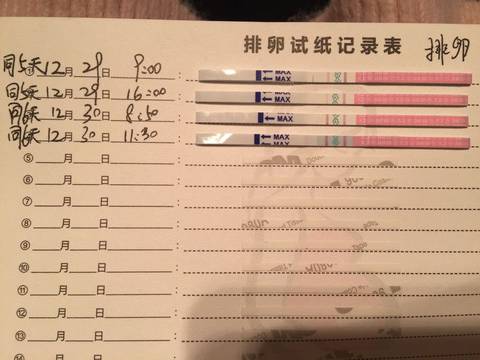 排卵试纸记录表 排卵
同5天 12月29日 9:00
MAX
MAX
同5天 12月29日 16:00
MAX
MAX
同6天 12月30日 8:50
MAX
同6天 12月30日 11:30
MAX
⑤ 月 日 :
⑥ 月 日 :
⑦ 月 日 :
⑧ 月 日 :
⑨ 月 日 :
⑩ 月 日 :
⑪ 月 日 :
⑫ 月 日 :
⑬ 月 日 :